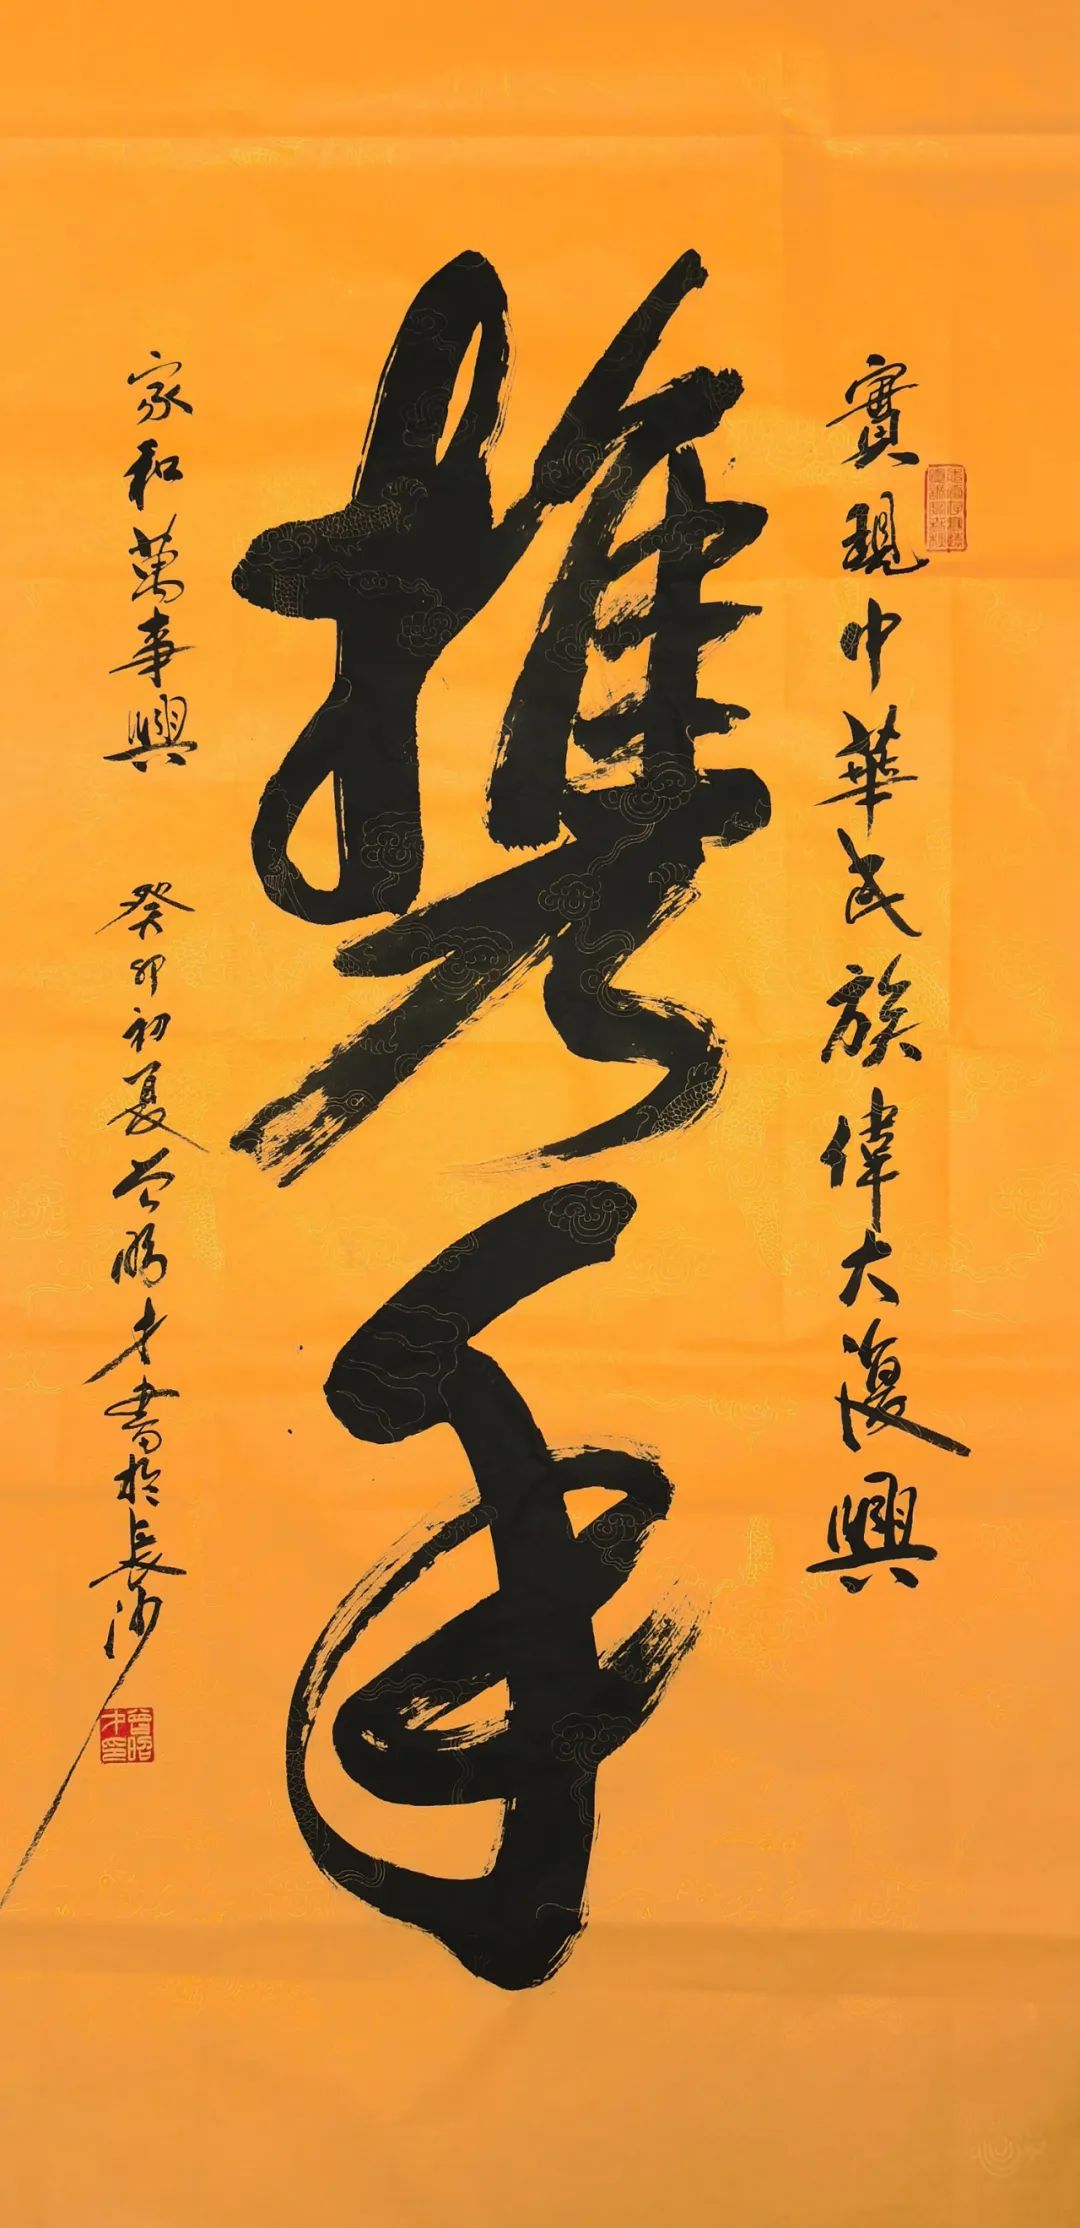 實現中華民族偉大復興
携手
家和萬事興 癸卯初夏曾昭才書於長沙
曾昭才印